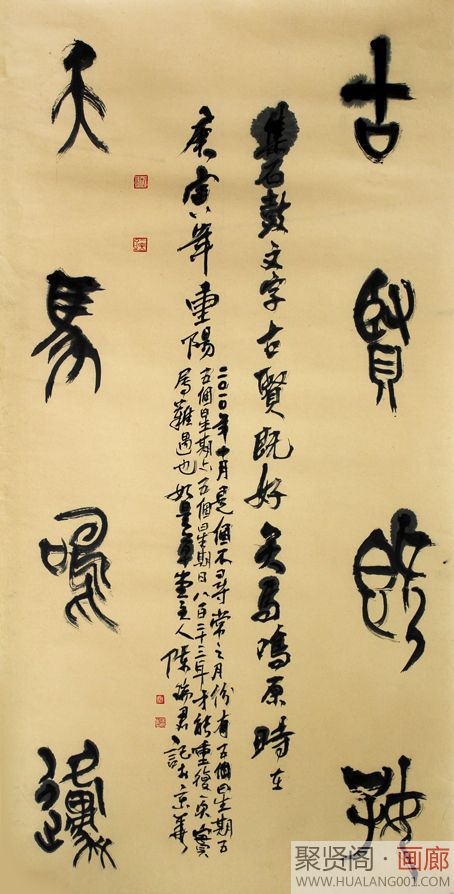 古賢既好
集石鼓文字古賢既好天馬鳴原時在
庚寅年重陽
二〇一〇年十月是個不尋常之月份有五個星期五
五個星期六五個星期日八百二十三年才能重復實
屬難遇也如是草堂主人陳瑞君記於京華
天馬鳴邍
聚贤阁·画廊
WWW.HUALANG001.COM